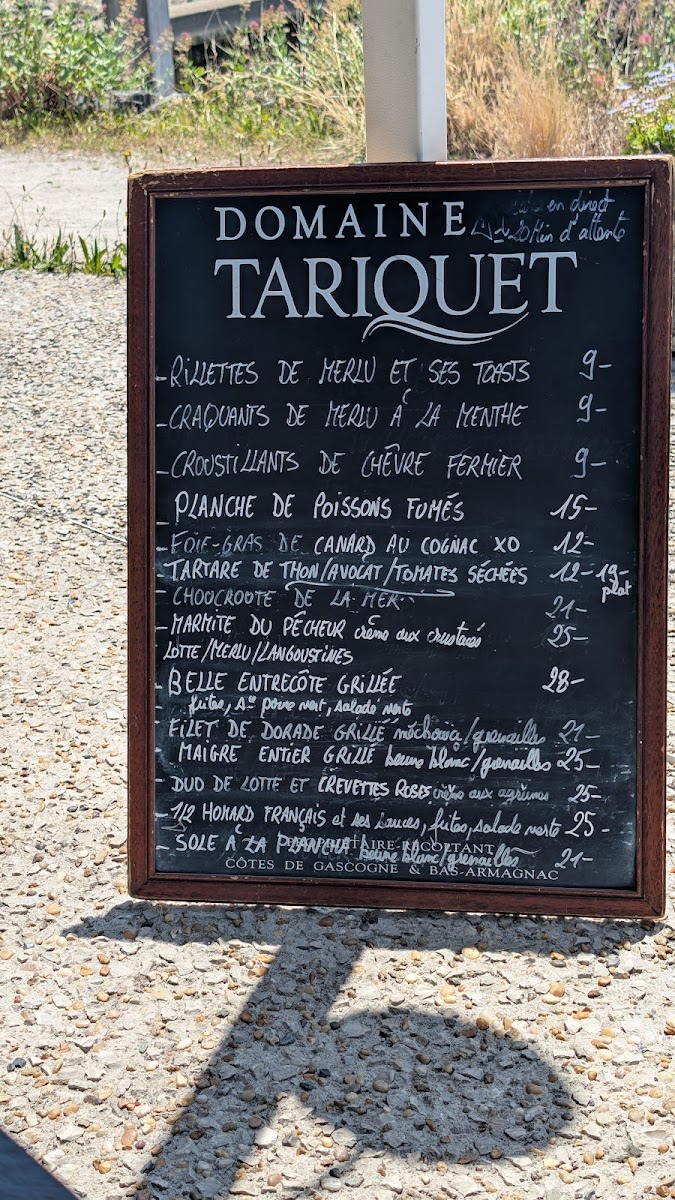 DOMAINE
en direct
20 Min d'attente
TARIQUET
- RILLETTES DE MERLU ET SES TOASTS 9-
- CRAQUANTS DE MERLU À LA MENTHE 9-
- CROUSTILLANTS DE CHÊVRE FERMIER 9-
- PLANCHE DE POISSONS FUMÉS 15-
- FOIE-GRAS DE CANARD AU COGNAC XO 12-
- TARTARE DE THON/AVOCAT/TOMATES SÉCHÉES 12- 19- plat
- CHOUCROUTE DE LA MER 21-
- MARMITE DU PÊCHEUR crème aux crustacés 25-
LOTTE/MERLU/LANGOUSTINES
- BELLE ENTRECÔTE GRILLÉE 28-
frites, Sce poivre vert, salade verte
- FILET DE DORADE GRILLÉ /grenailles 21-
- MAIGRE ENTIER GRILLÉ beurre blanc/grenailles 25-
- DUO DE LOTTE ET CREVETTES ROSES crème aux agrumes 25-
- 1/2 HOMARD FRANÇAIS et ses sauces, frites, salade verte 25-
- SOLE À LA PLANCHA beurre blanc/grenailles 21-
PROPRIÉTAIRE-RÉCOLTANT
CÔTES DE GASCOGNE & BAS-ARMAGNAC